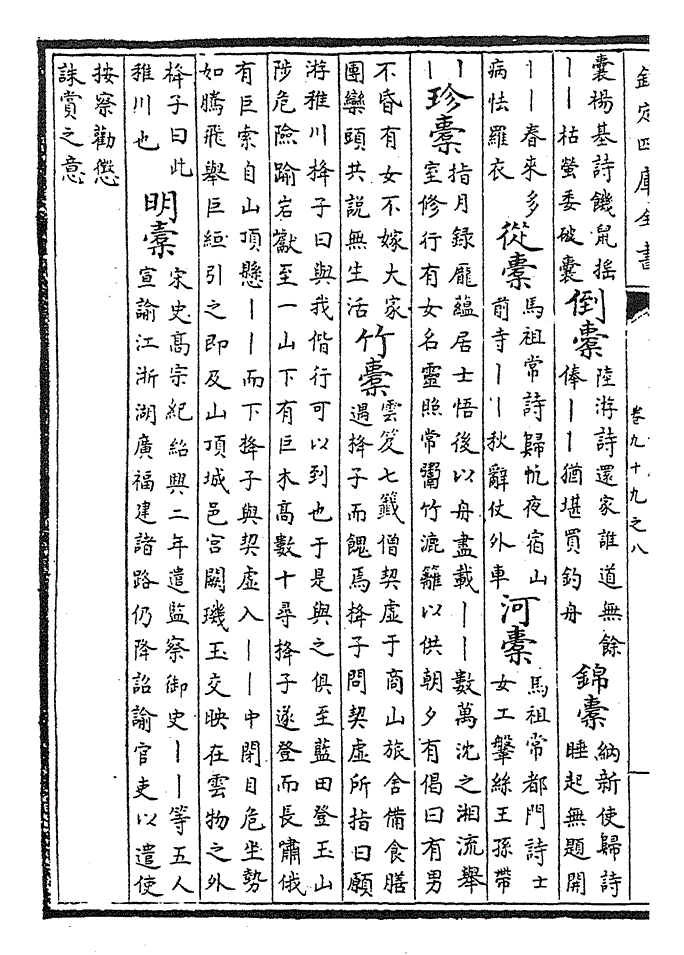 欽定四庫全書
卷九十九之八
囊楊基詩饑鼠揺
丨丨枯螢委破囊
倒橐
陸游詩還家誰道無餘
俸丨丨猶堪買釣舟
錦橐
納新使歸詩
睡起無題開
丨丨春來多
病怯羅衣
從橐
馬祖常詩歸忱夜宿山
前寺丨丨秋辭仗外車
河橐
馬祖常都門詩士
女工鞶絲王孫帶
丨丨
珍橐
指月録龎藴居士悟後以舟盡載丨丨數萬沈之湘流舉
室修行有女名靈照常鬻竹漉籬以供朝夕有偈曰有男
不昏有女不嫁大家
團欒頭共説無生活
竹橐
雲笈七籤僧契虚于商山旅舍備食膳
遇捀子而餽焉捀子問契虚所指曰願
游稚川捀子曰與我偕行可以到也于是與之俱至藍田登玉山
陟危險踰岩巘至一山下有巨木髙數十尋捀子遂登而長嘯俄
有巨索自山頂懸丨丨而下捀子與契虚入丨丨中閉目危坐勢
如騰飛舉巨絙引之即及山頂城邑宫闕璣玉交映在雲物之外
捀子曰此
稚川也
明橐
宋史髙宗紀紹興二年遣監察御史丨丨等五人
宣諭江浙湖廣福建諸路仍降詔諭官吏以遣使
按察勸懲
誅賞之意